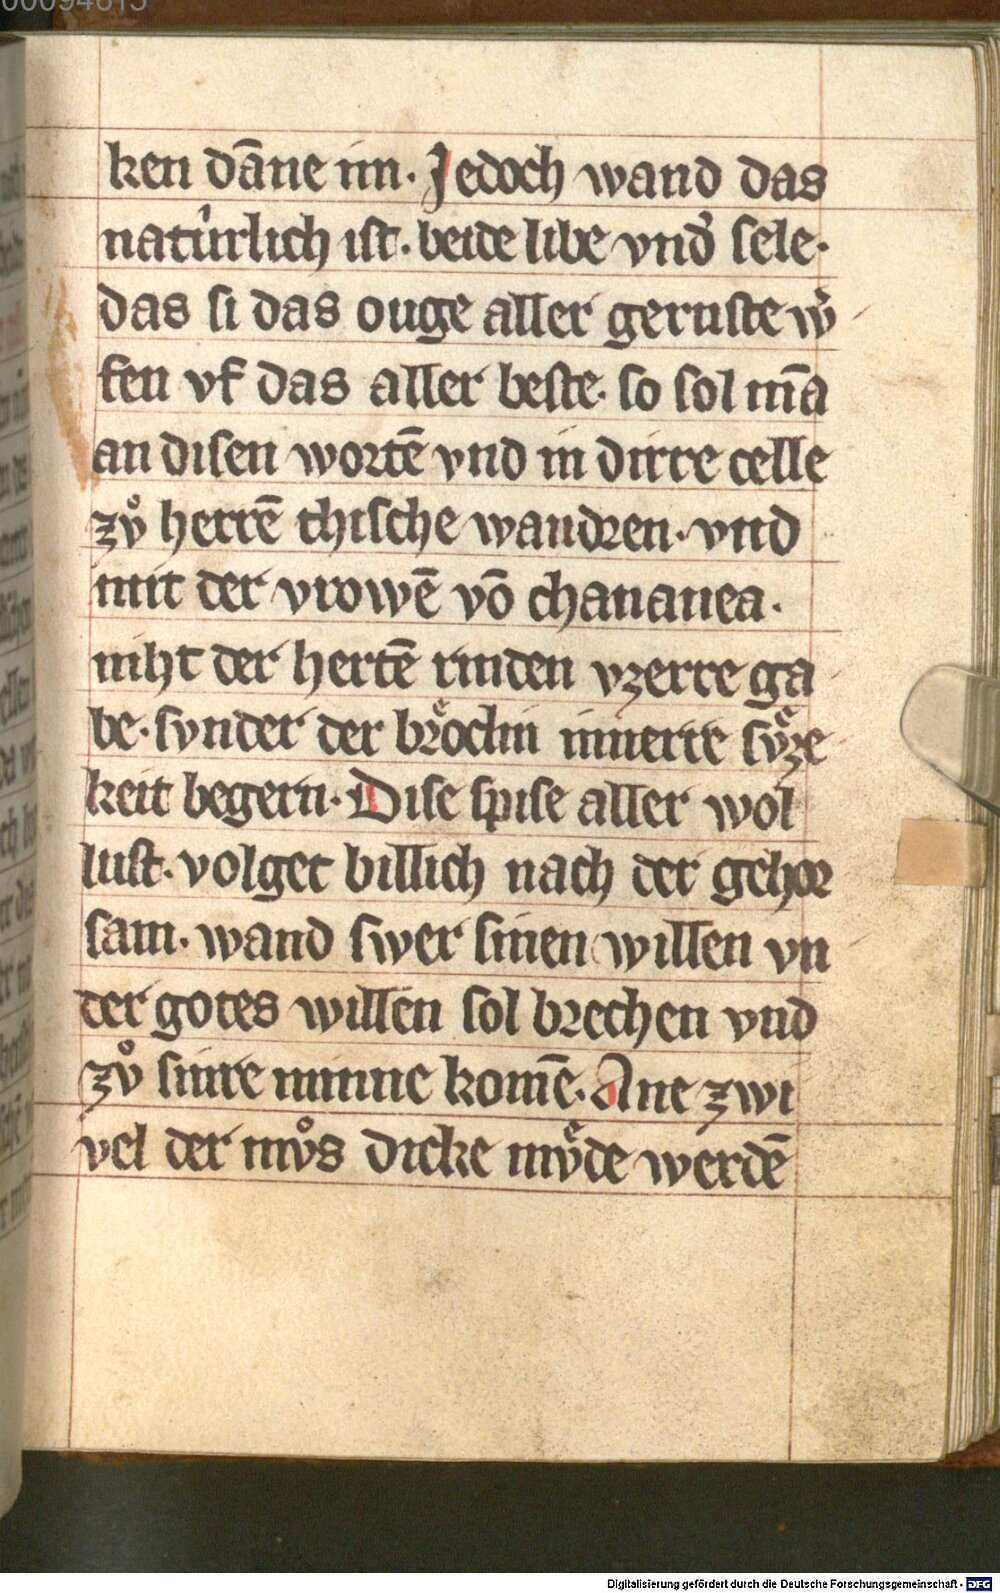 00094615
ken dāne im. Jedoch wand das
natůrlich ist. beide libe vnd̾ sele.
das si das ouge aller gernste w̾
fen vf das aller beste. so sol mā
an disen wortē vnd in dirre celle
zů herrē thische wandren. vnd
mit der vrowē vō chananea.
niht der hertē rinden vzerre ga
be. svnder der brͤoclin innerre sv̈ze
keit begern. Dise spise aller wol
lust. volget billich nach der gehor
sam. wand swer sinen willen vn
der gotes willen sol brechen vnd
zvͦ sinre minne komē. Ane zwi
vel der mvͦs dicke mvͤde werdē
Digitalisierung gefördert durch die Deutsche Forschungsgemeinschaft - DFG